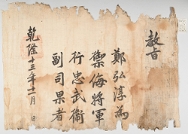 教旨
鄭弘淳為
禦侮將軍
行忠武衛
副司果者
乾隆十三年十二月 日